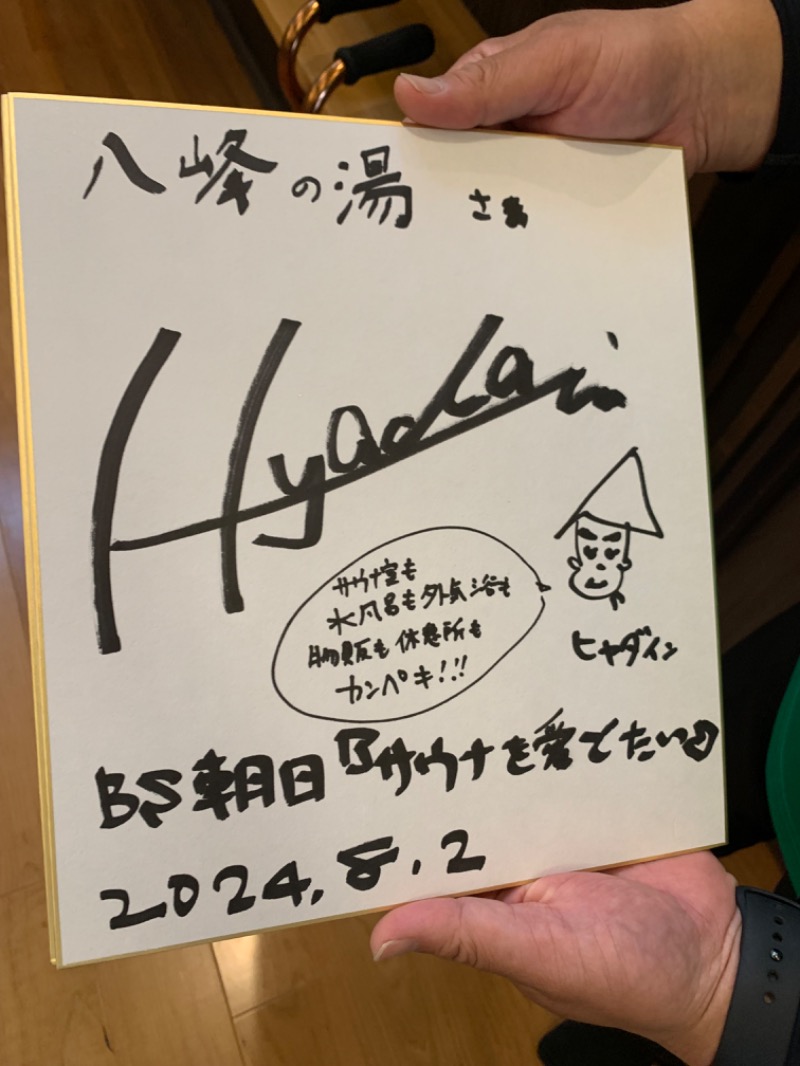 八峰の湯 さま
Hyadain
サウナ室も
水風呂も外気浴も
物販も休憩所も
カンペキ!!!
ヒャダイン
BS朝日『サウナを愛でたい』
2024.8.2